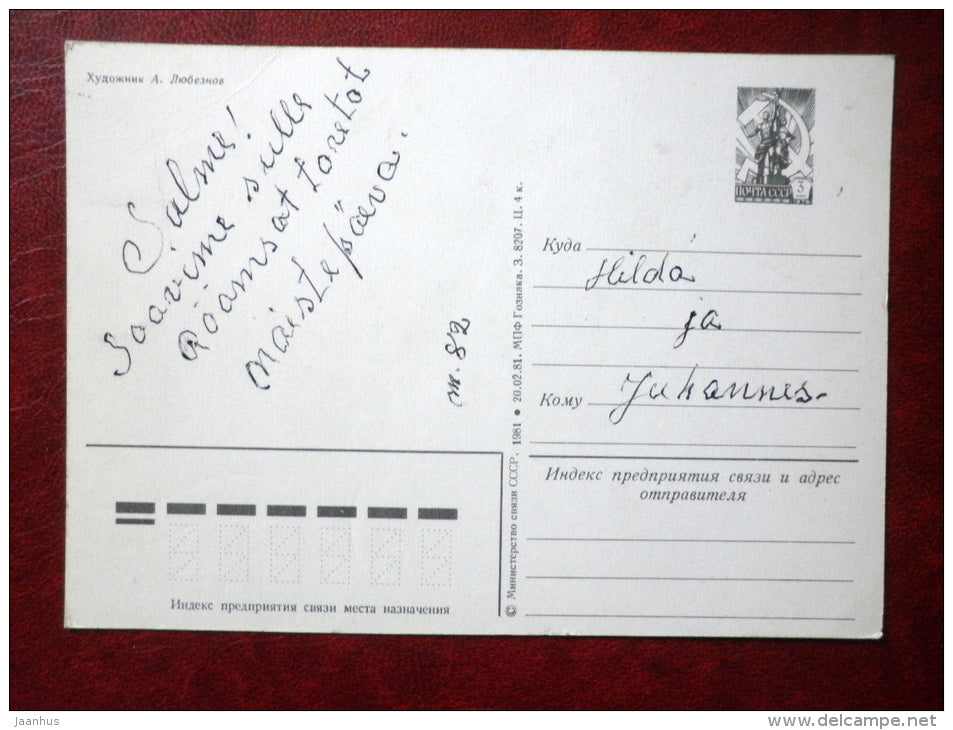 Художник А. Любезнов
Salme!
Soovime sulle
Rõõmsat toretat
naistepäeva.
m. 82
ПОЧТА СССР
3
Куда
Hilda
ja
Кому
Juhannes.
Индекс предприятия связи и адрес
отправителя
Индекс предприятия связи места назначения
© Министерство связи СССР, 1981 • 20.02.81. МПФ Гознака. З. 8207. Ц. 4 к.
Jaanhus
www.delcampe.net